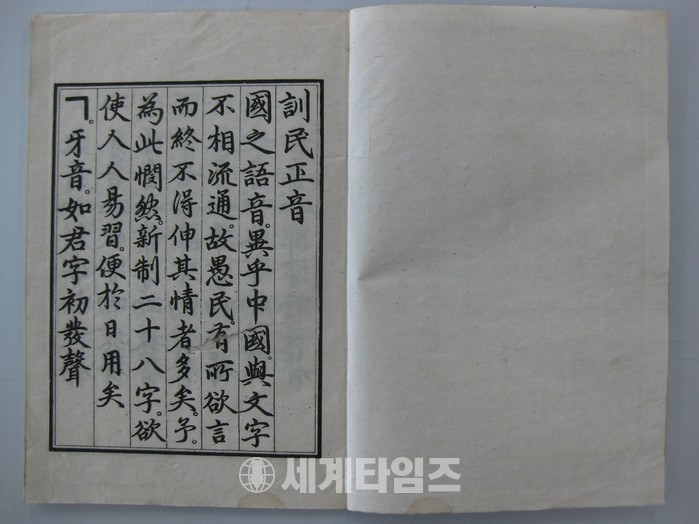 訓民正音
國之語音。異乎中國。與文字
不相流通。故愚民。有所欲言
而終不得伸其情者多矣。予。
為此憫然。新制二十八字。欲
使人人易習。便於日用矣
ㄱ。牙音。如君字初發聲
세계타임즈